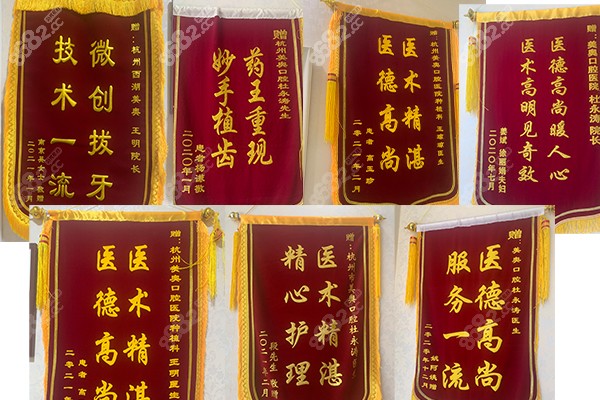 赠：杭州西湖美奥 王明院长
微创拔牙
技术一流
二〇二
赠杭州美奥口腔杜永涛先生
药王重现
妙手植齿
二〇二〇年一月
赠杭州美奥口腔医院种植科
医术精湛
医德高尚
患者 高玉珍
赠：美奥口腔医院 杜永涛院长
医德高尚暖人心
医术高明见奇效
二〇二〇年七月
赠：杭州美奥口腔医院种植科 王明医生
医术精湛
医德高尚
患者 高
二〇二一年
赠：杭州市美奥口腔杜永涛
医术精湛
精心护理
段先生 敬赠
二〇二一年二月
赠：美奥口腔杜永涛医生
医德高尚
服务一流
二〇二〇年十二月